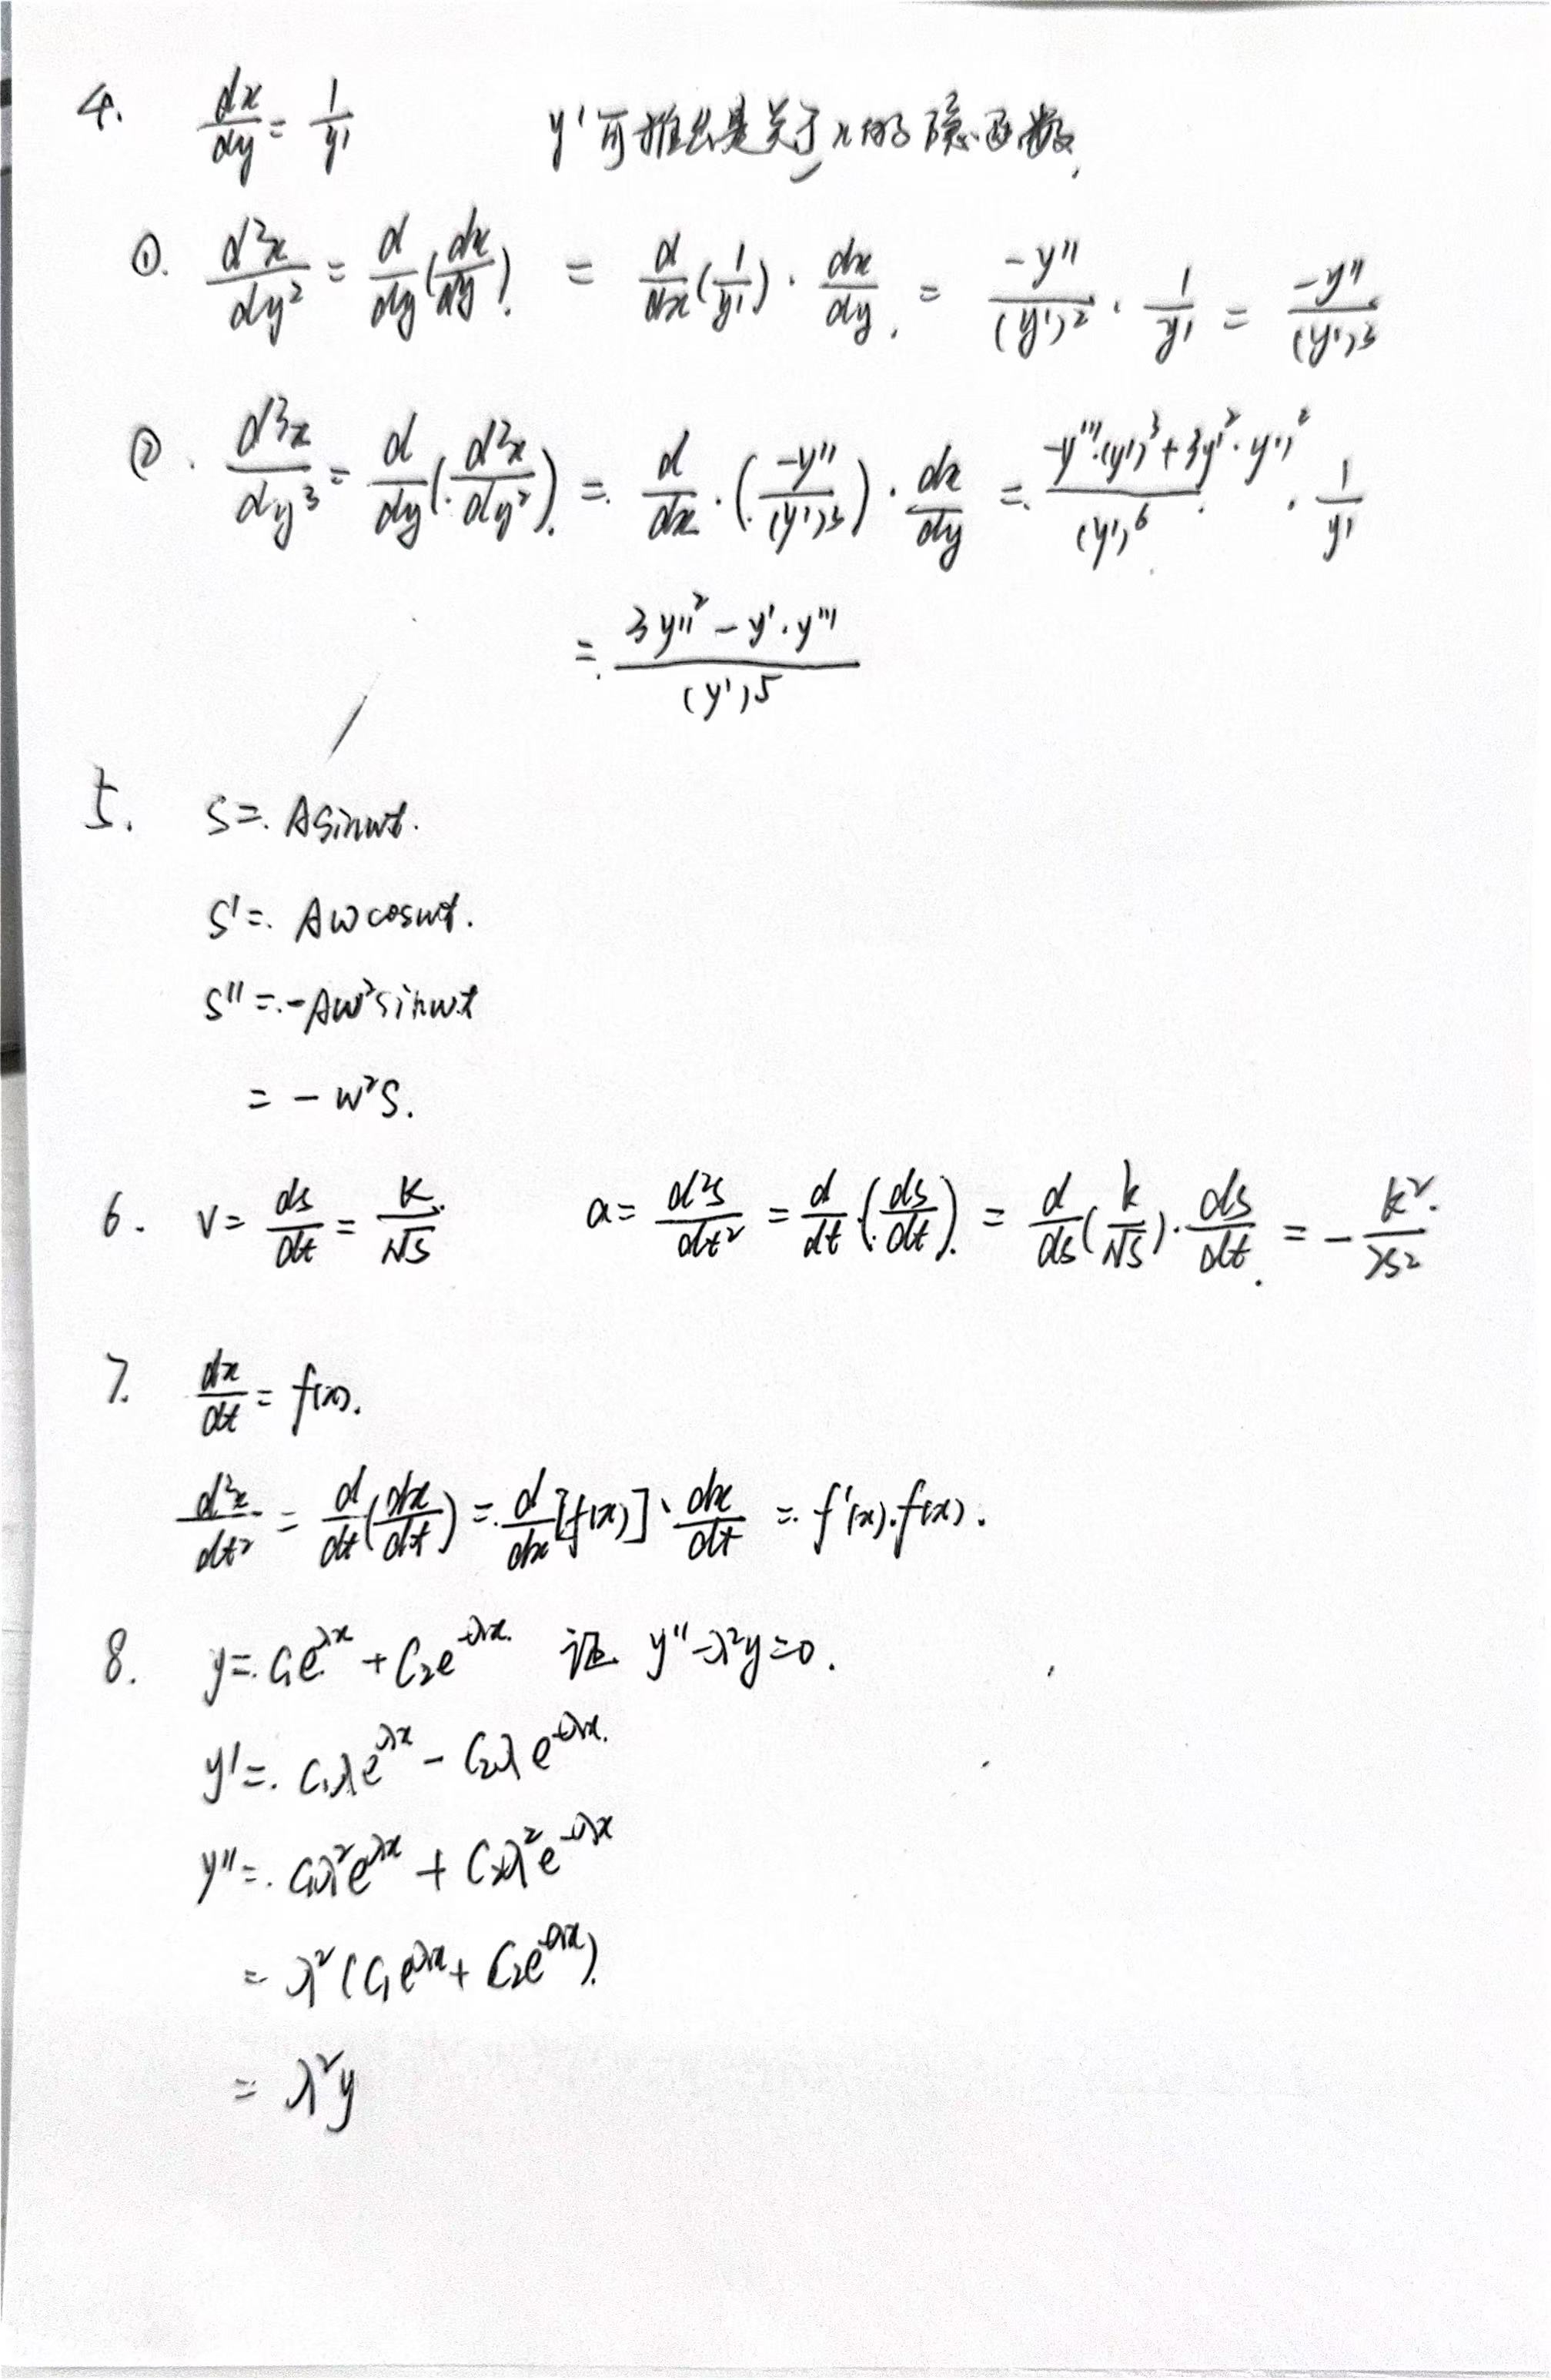 4. dx/dy = 1/y' y'可推出是关于x的隐函数,
①. d²x/dy² = d/dy(dx/dy). = d/dx(1/y') · dx/dy. = -y''/(y')² · 1/y' = -y''/(y')³
②. d³x/dy³ = d/dy(d²x/dy²). = d/dx · (-y''/(y')³) · dx/dy = (-y'''·(y')³+3y''²·y')²)/(y')⁶ · 1/y'
= (3y''² - y'·y''')/(y')⁵
5. S = Asinwt.
S' = Awcoswt.
S'' = -Aw²sinwt
= - w²S.
6. v = ds/dt = k/√s a = d²s/dt² = d/dt(ds/dt). = d/ds(k/√s)·ds/dt. = - k²/2s²
7. dx/dt = f(x).
d²x/dt² = d/dt(dx/dt) = d/dx[f(x)]·dx/dt = f'(x)·f(x).
8. y = C₁e^λx + C₂e^-λx. 证 y''-λ²y=0.
y' = C₁λe^λx - C₂λe^-λx.
y'' = C₁λ²e^λx + C₂λ²e^-λx
= λ²(C₁e^λx + C₂e^-λx).
= λ²y